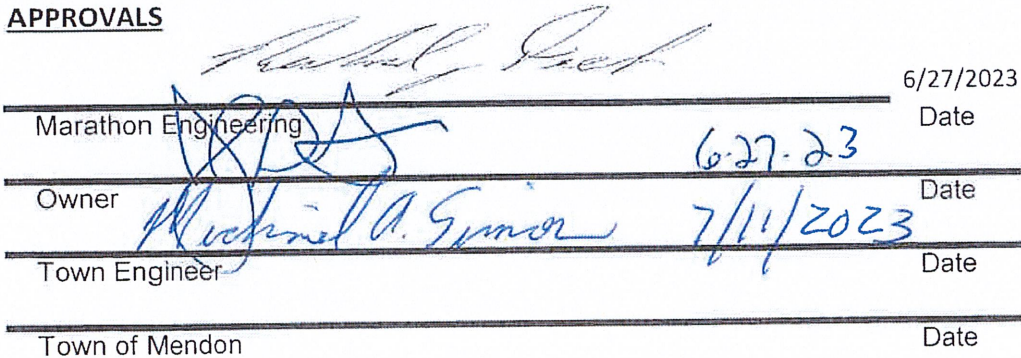 APPROVALS
6/27/2023
Marathon Engineering Date
6-27-23
Owner Date
Michael A. Simon 7/11/2023
Town Engineer Date
Town of Mendon Date